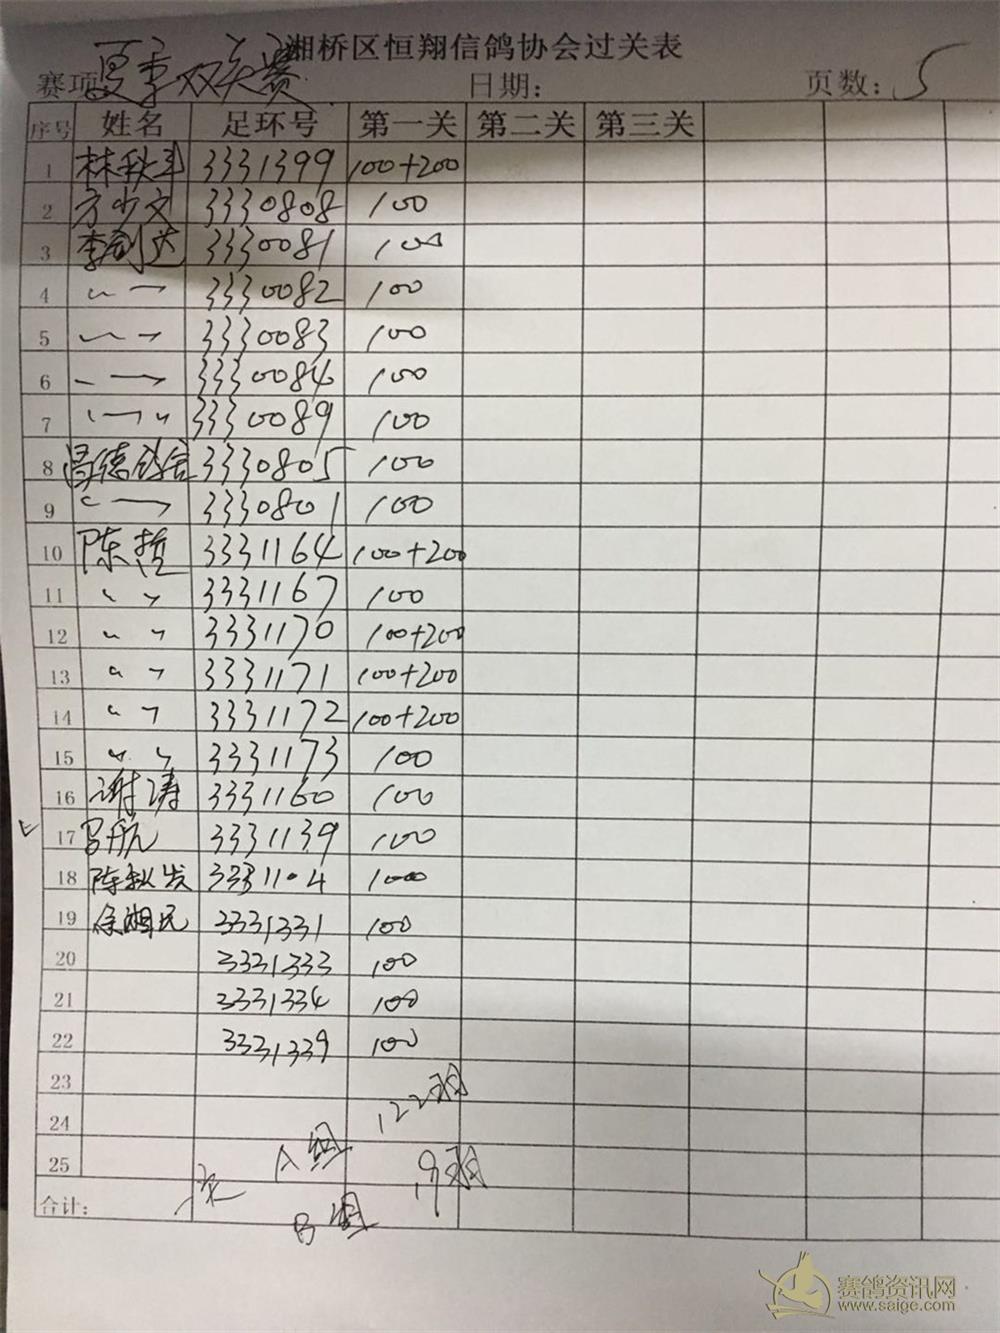 湘桥区恒翔信鸽协会过关表
赛项 夏季双关赛 日期: 页数: 5
序号 姓名 足环号 第一关 第二关 第三关
1 林秋 3331399 100+200
2 方少文 3330808 100
3 李剑达 3330081 100
4 〃 3330082 100
5 〃 3330083 100
6 〃 3330084 100
7 〃 3330089 100
8 昌德鸽舍 3330805 100
9 〃 3330801 100
10 陈哲 3331164 100+200
11 〃 〃 3331167 100
12 〃 〃 3331170 100+200
13 〃 〃 3331171 100+200
14 〃 〃 3331172 100+200
15 〃 〃 3331173 100
16 谢涛 3331160 100
17 航 3331139 100
18 陈秋发 3331104 100
19 徐湘民 3331331 100
20 3331333 100
21 3331334 100
22 3331339 100
23
24
25
A组 122羽
B组 19羽
合计:
赛鸽资讯网
www.saige.com